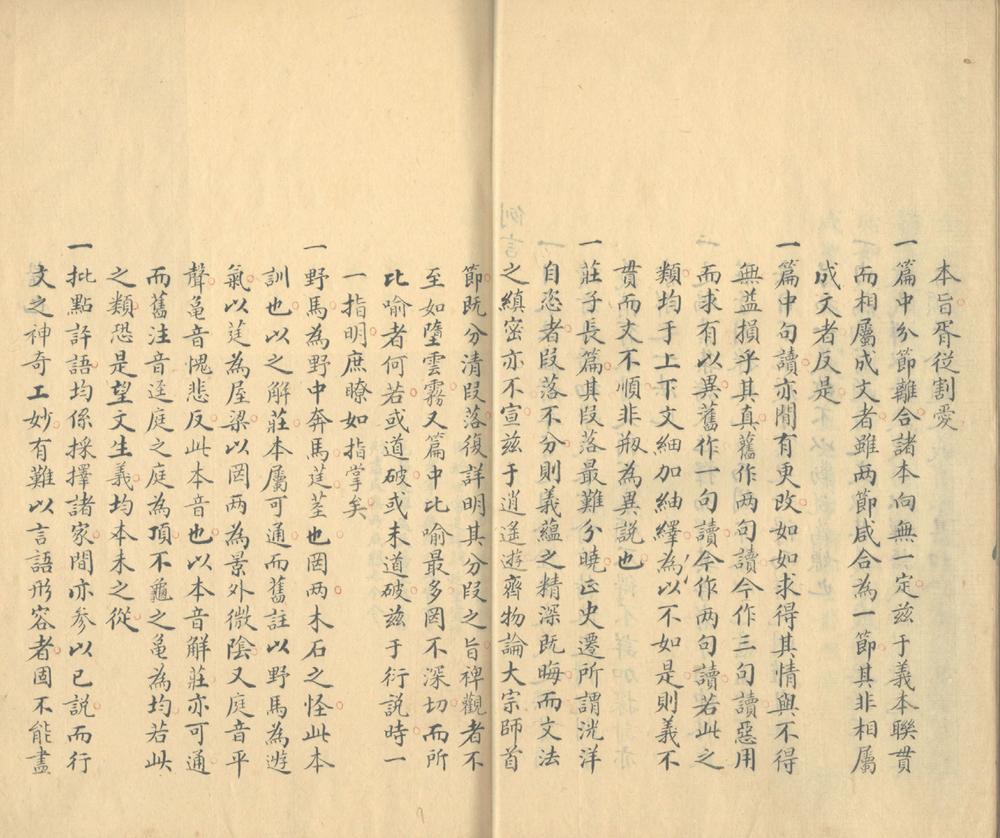 本旨胥從割愛
一篇中分節離合諸本向無一定茲于義本聯貫
而相屬成文者雖兩節咸合為一節其非相屬
成文者反是
一篇中句讀亦間有更改如如求得其情與不得
無益損乎其真舊作兩句讀今作三句讀惡用
而求有以異舊作一句讀今作兩句讀若此之
類均于上下文細加紬繹為以不如是則義不
貫而文不順非剏為異說也
一莊子長篇其段落最難分曉正史遷所謂洸洋
自恣者段落不分則義蘊之精深既晦而文法
之縝密亦不宣茲于逍遙遊齊物論大宗師首
節既分清段落復詳明其分段之旨裨觀者不
至如墮雲霧又篇中比喻最多罔不深切而所
比喻者何若或道破或未道破茲于衍說時一
一指明庶瞭如指掌矣
一野馬為野中奔馬莛莖也罔兩木石之怪此本
訓也以之解莊本屬可通而舊註以野馬為遊
氣以莛為屋梁以罔兩為景外微陰又庭音平
聲龜音愧悲反此本音也以本音解莊亦可通
而舊注音逕庭之庭為項不龜之龜為均若此
之類恐是望文生義均本未之從
一批點評語均係採擇諸家間亦參以已說而行
文之神奇工妙有難以言語形容者固不能盡